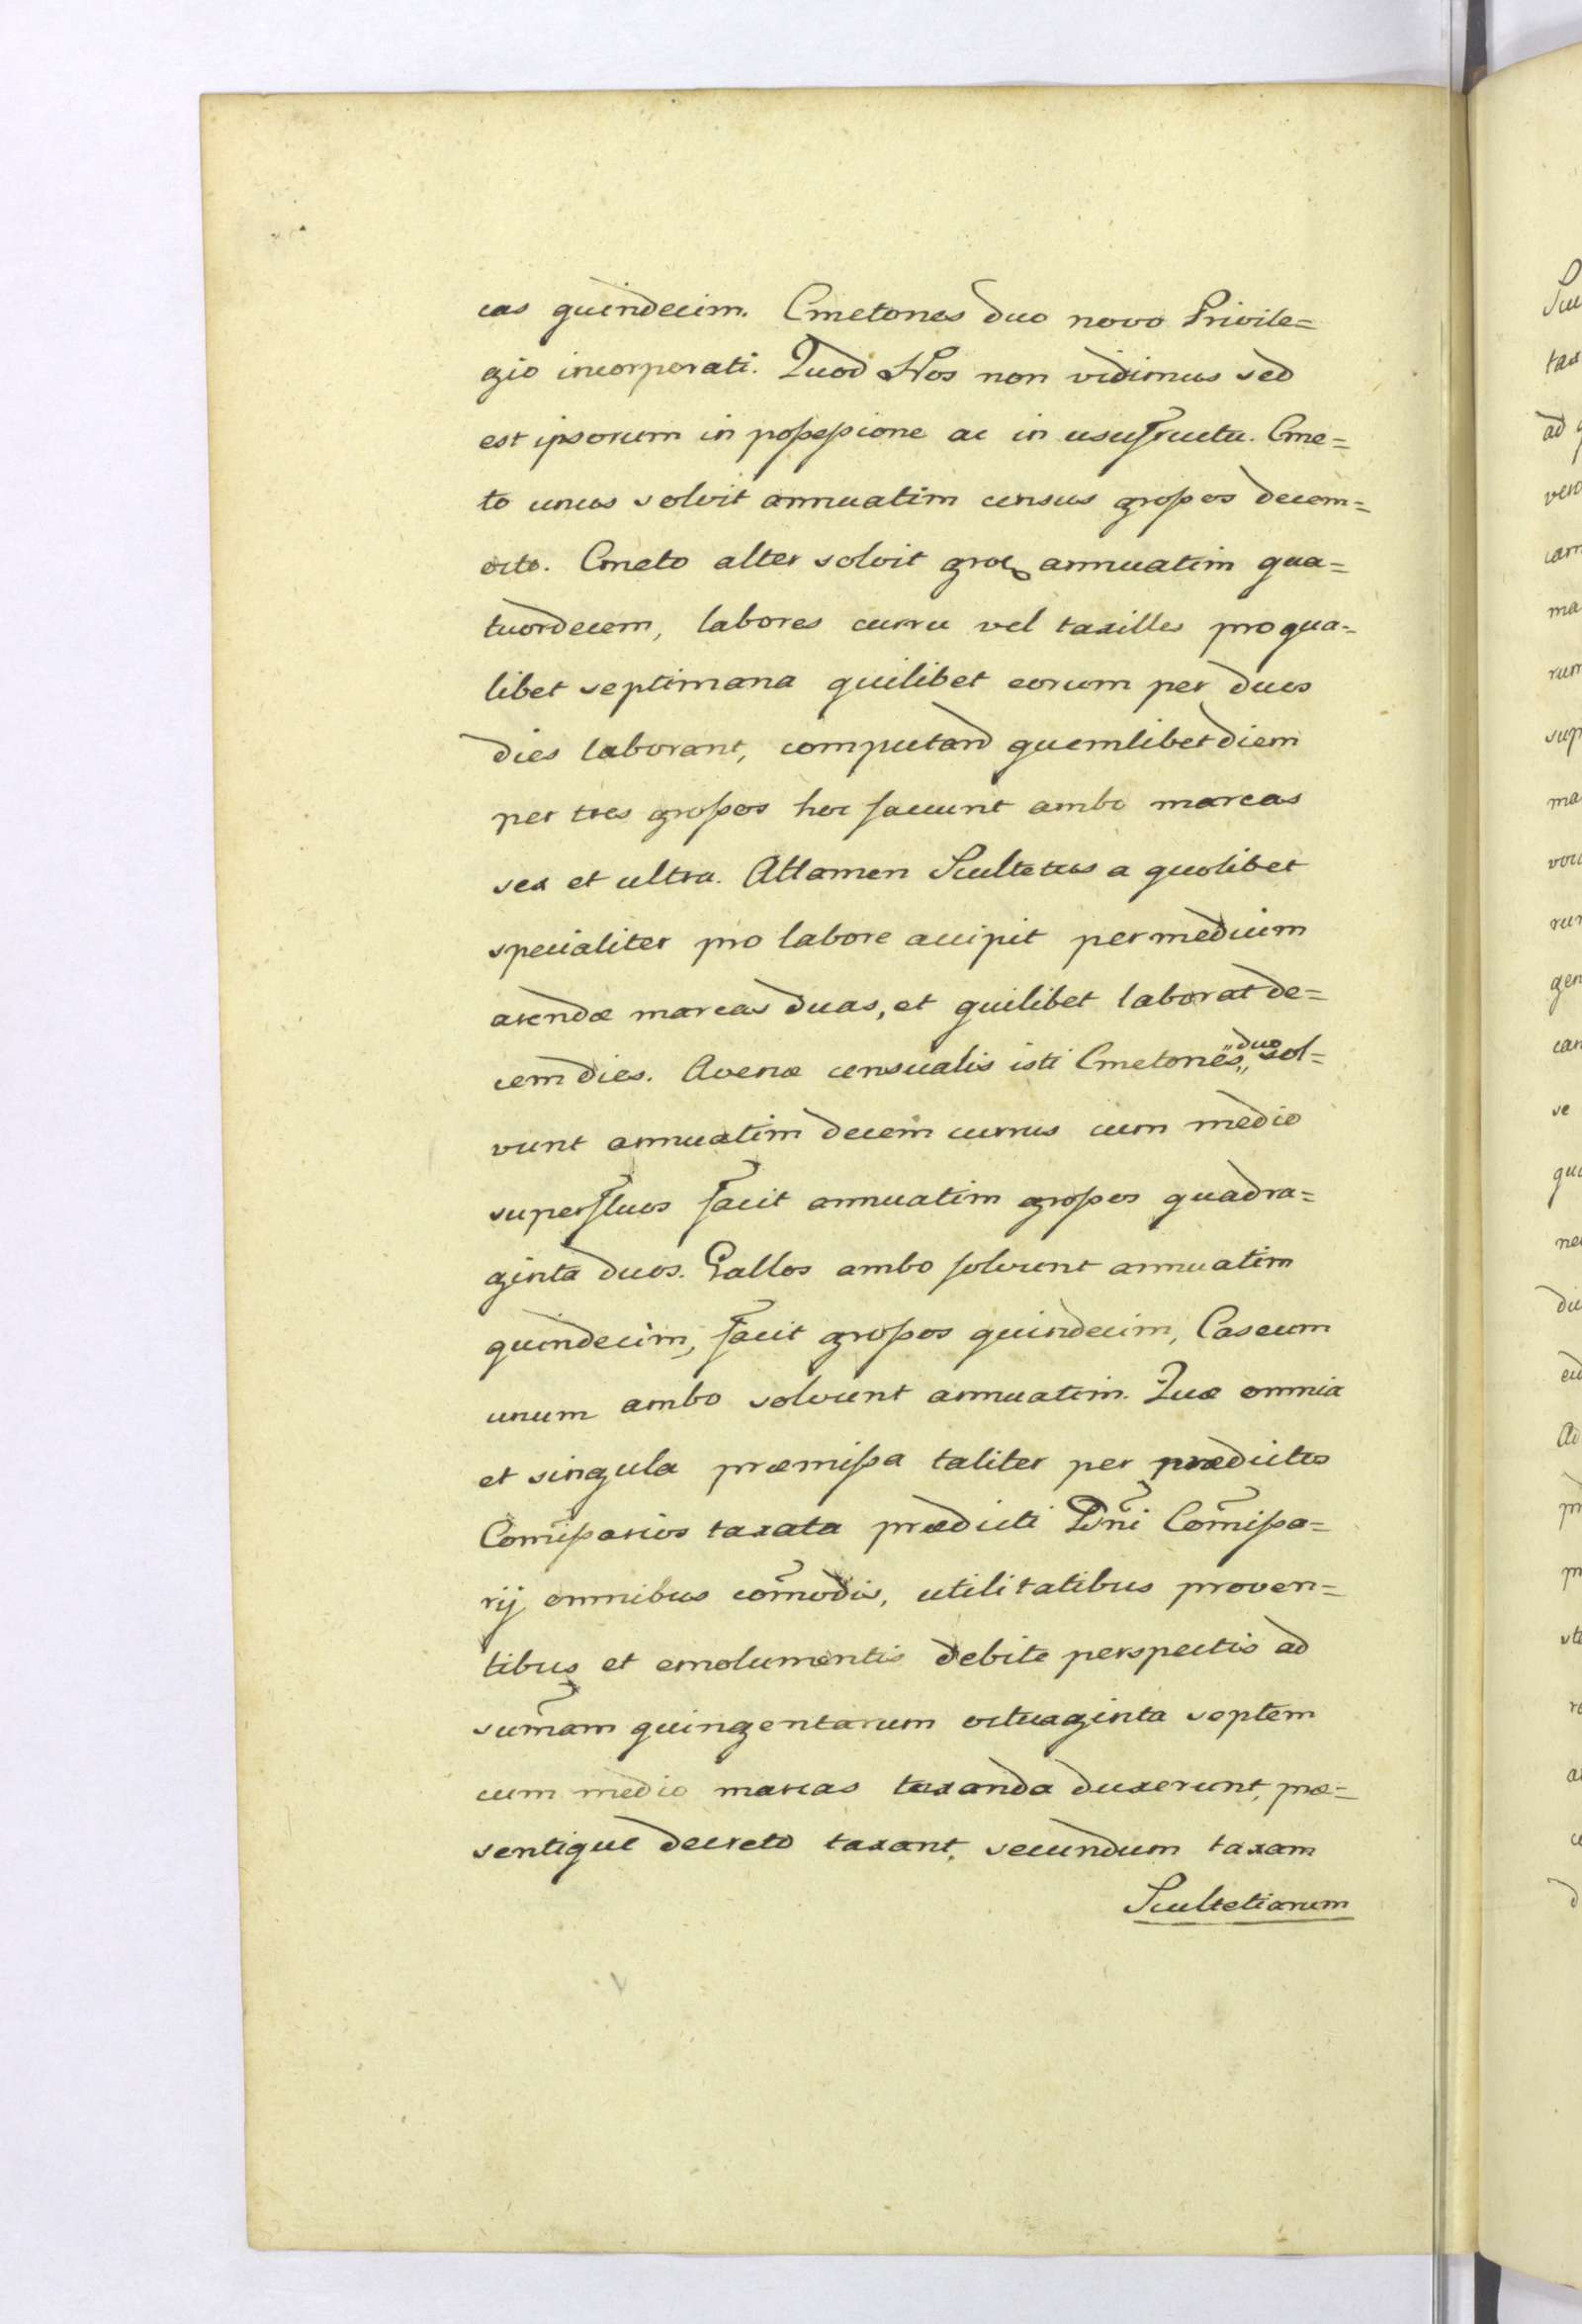 cas quindecim. Cmetones duo novo Privile=
gio incorporati. Quod Nos non vidimus sed
est ipsorum in poſseſsione ac in usufructu. Cme=
to unus solvit annuatim census groſsos decem=
octo. Cmeto alter solvit gros annuatim qua=
tuordecem, labores curru vel taxilles pro qua=
libet septimana quilibet eorum per duos
dies laborant, computand quemlibet diem
per tres groſsos hoc faciunt ambo marcas
sex et ultra. Attamen Scultetus a quolibet
specialiter pro labore accipit per medium
arendæ marcas duas, et quilibet laborat de=
cem dies. Avenæ censualis isti Cmetones „duo„ sol=
vunt annuatim decem currus cum medio
superfluos facit annuatim groſsos quadra=
ginta duos. Gallos ambo solvunt annuatim
quindecim, facit groſsos quindecim, Caseum
unum ambo solvunt annuatim. Quæ omnia
et singula præmiſsa taliter per prædictos
Com̃iſsarios taxata prædicti Dñi Com̃iſsa=
rij omnibus com̃odis, utilitatibus proven=
tibus et emolumentis debite perspectis ad
sum̃am quingentarum octuaginta septem
cum medio marcas taxanda duxerunt, præ=
sentique decreto taxant, secundum taxam
Scultetiarum
D
Scu
tax
ad
vero
cam
ma
rum
sup
ma
rum
gen
can
se
qu
ne